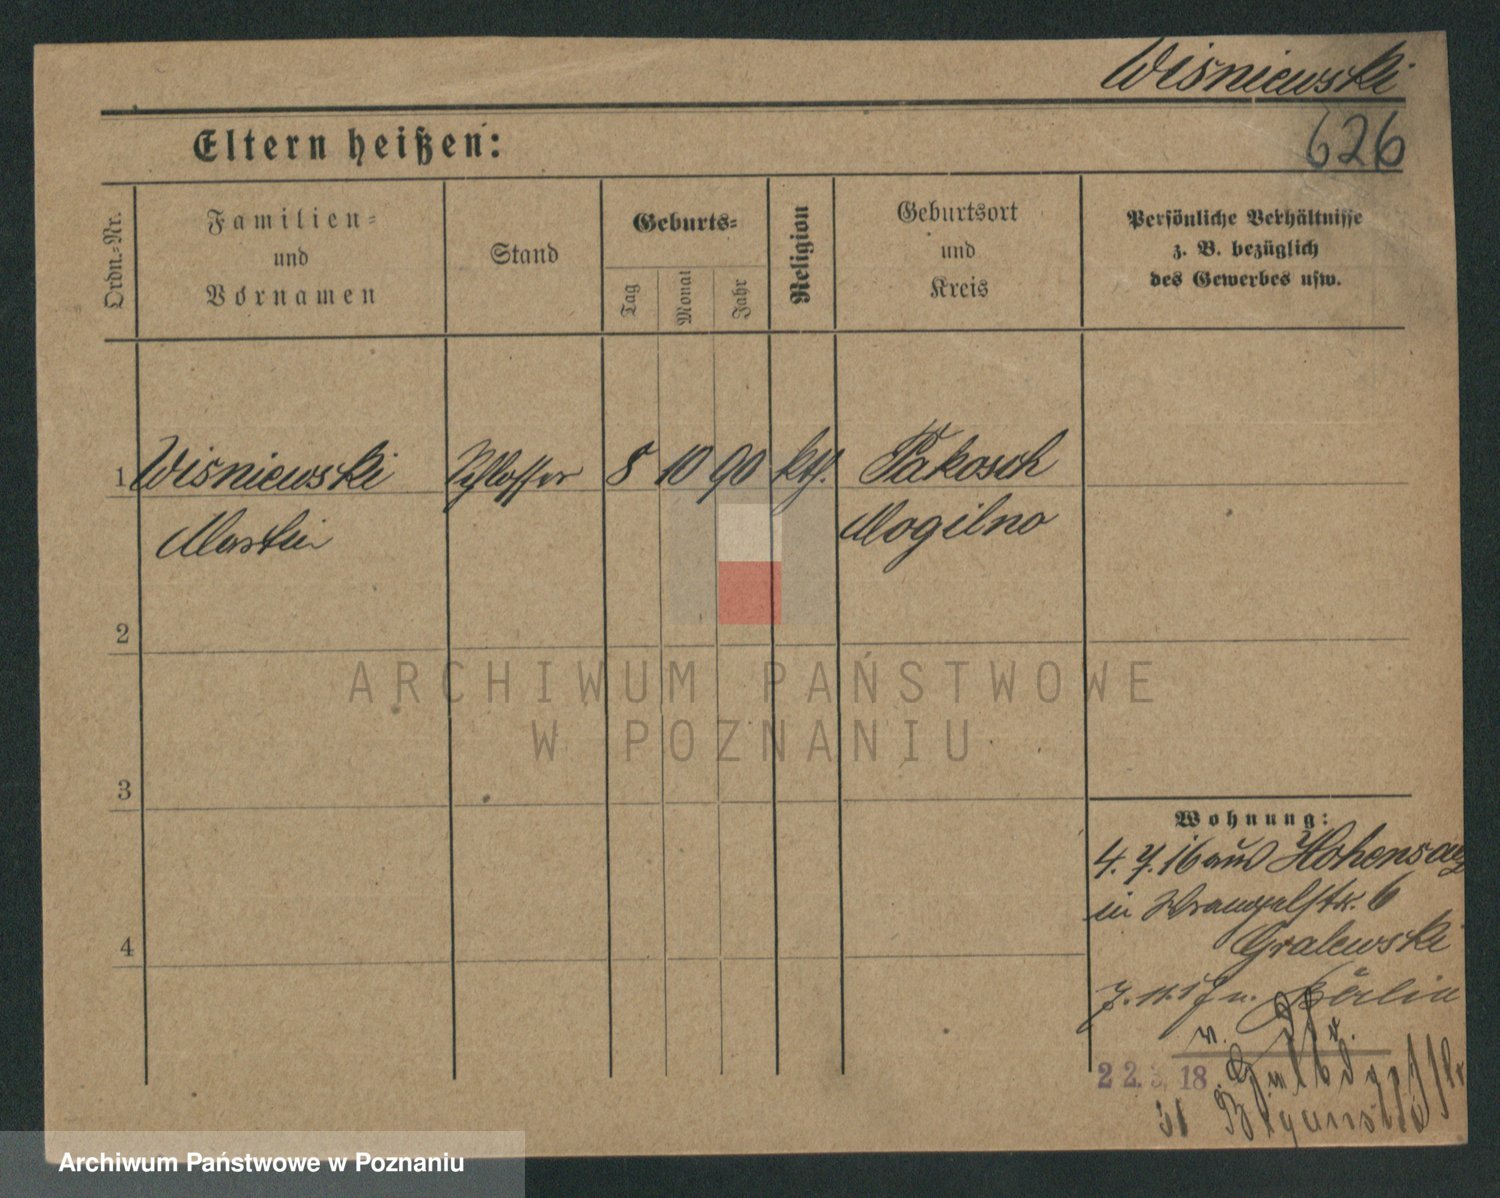 Wiśniewski
626
Eltern heißen:
Ordn.-Nr.
Familien-
und
Vornamen
Stand
Geburts-
Tag
Monat
Jahr
Religion
Geburtsort
und
Kreis
Persönliche Verhältnisse
z. B. bezüglich
des Gewerbes usw.
1 Wiśniewski Schlosser 8 10 90 kth. Pakosch
Martin Mogilno
2
3
4
Wohnung:
4. 7. 16 aus Hohensalz
in Wrangelstr. 6
Gralewski
7. 11. 17 n. Berlin
22.3.18.
ARCHIWUM PAŃSTWOWE
W POZNANIU
Archiwum Państwowe w Poznaniu